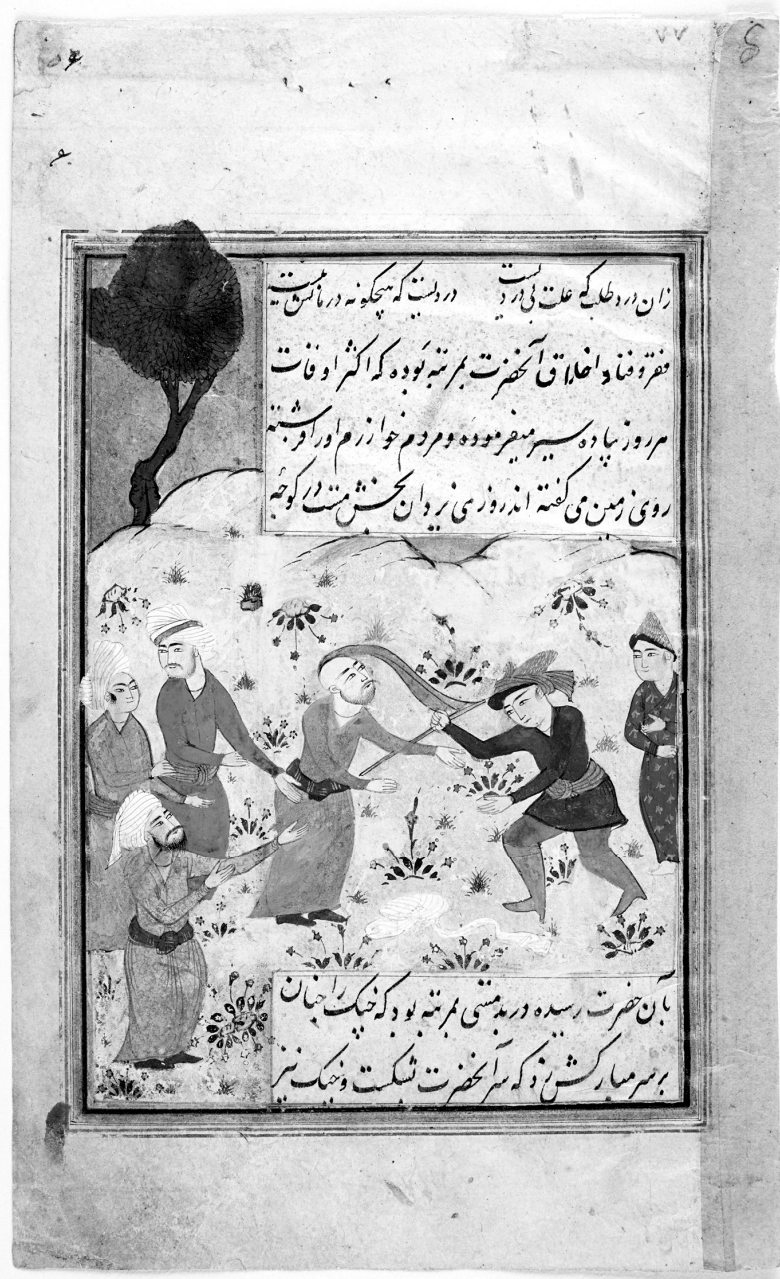 زان درد طلب که علت بی دردیست دردیست که هیچگونه درمانش نیست
فقر و فنا و اخلاق آنحضرت بمرتبه بوده که اکثر اوقات
هر روز پیاده سیر میفرموده و مردم خوارزم او را فرشته
روی زمین می گفته اند روزی نردان بخش مست در کوچه
بآن حضرت رسیده در بدمستی بمرتبه بود که خچک را چنان
بر سر مبارکش بزد که سر آنحضرت بشکست و خچک نیز